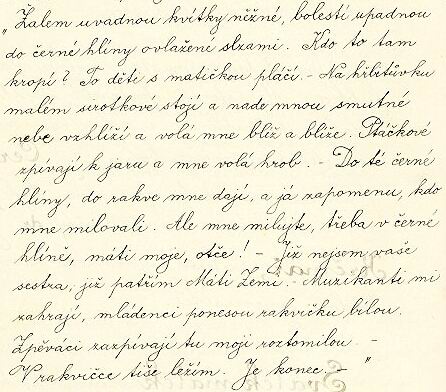 „Žalem uvadnou kvítky něžné, bolestí upadnou
do černé hlíny ovlaženi slzami. Kdo to tam
kropí? To děti s matičkou pláčí. - Na hřbitůvku
malém sirotkové stojí a nade mnou smutné
nebe vzhlíží a volá mne blíž a blíže. Ptáčkové
zpívají k jaru a mne volá hrob. - Do té černé
hlíny, do rakve mne dají, a já zapomenu, kdo
mne milovali. Ale mne milujte, třeba v černé
hlíně, máti moje, otče! - Již nejsem vaše
sestra, již patřím Máti Zemi. Muzikanti mi
zahrají, mládenci ponesou rakvičku bílou.
Zpěváci zazpívají tu moji roztomilou. -
V rakvičce tiše ležím. Je konec - "